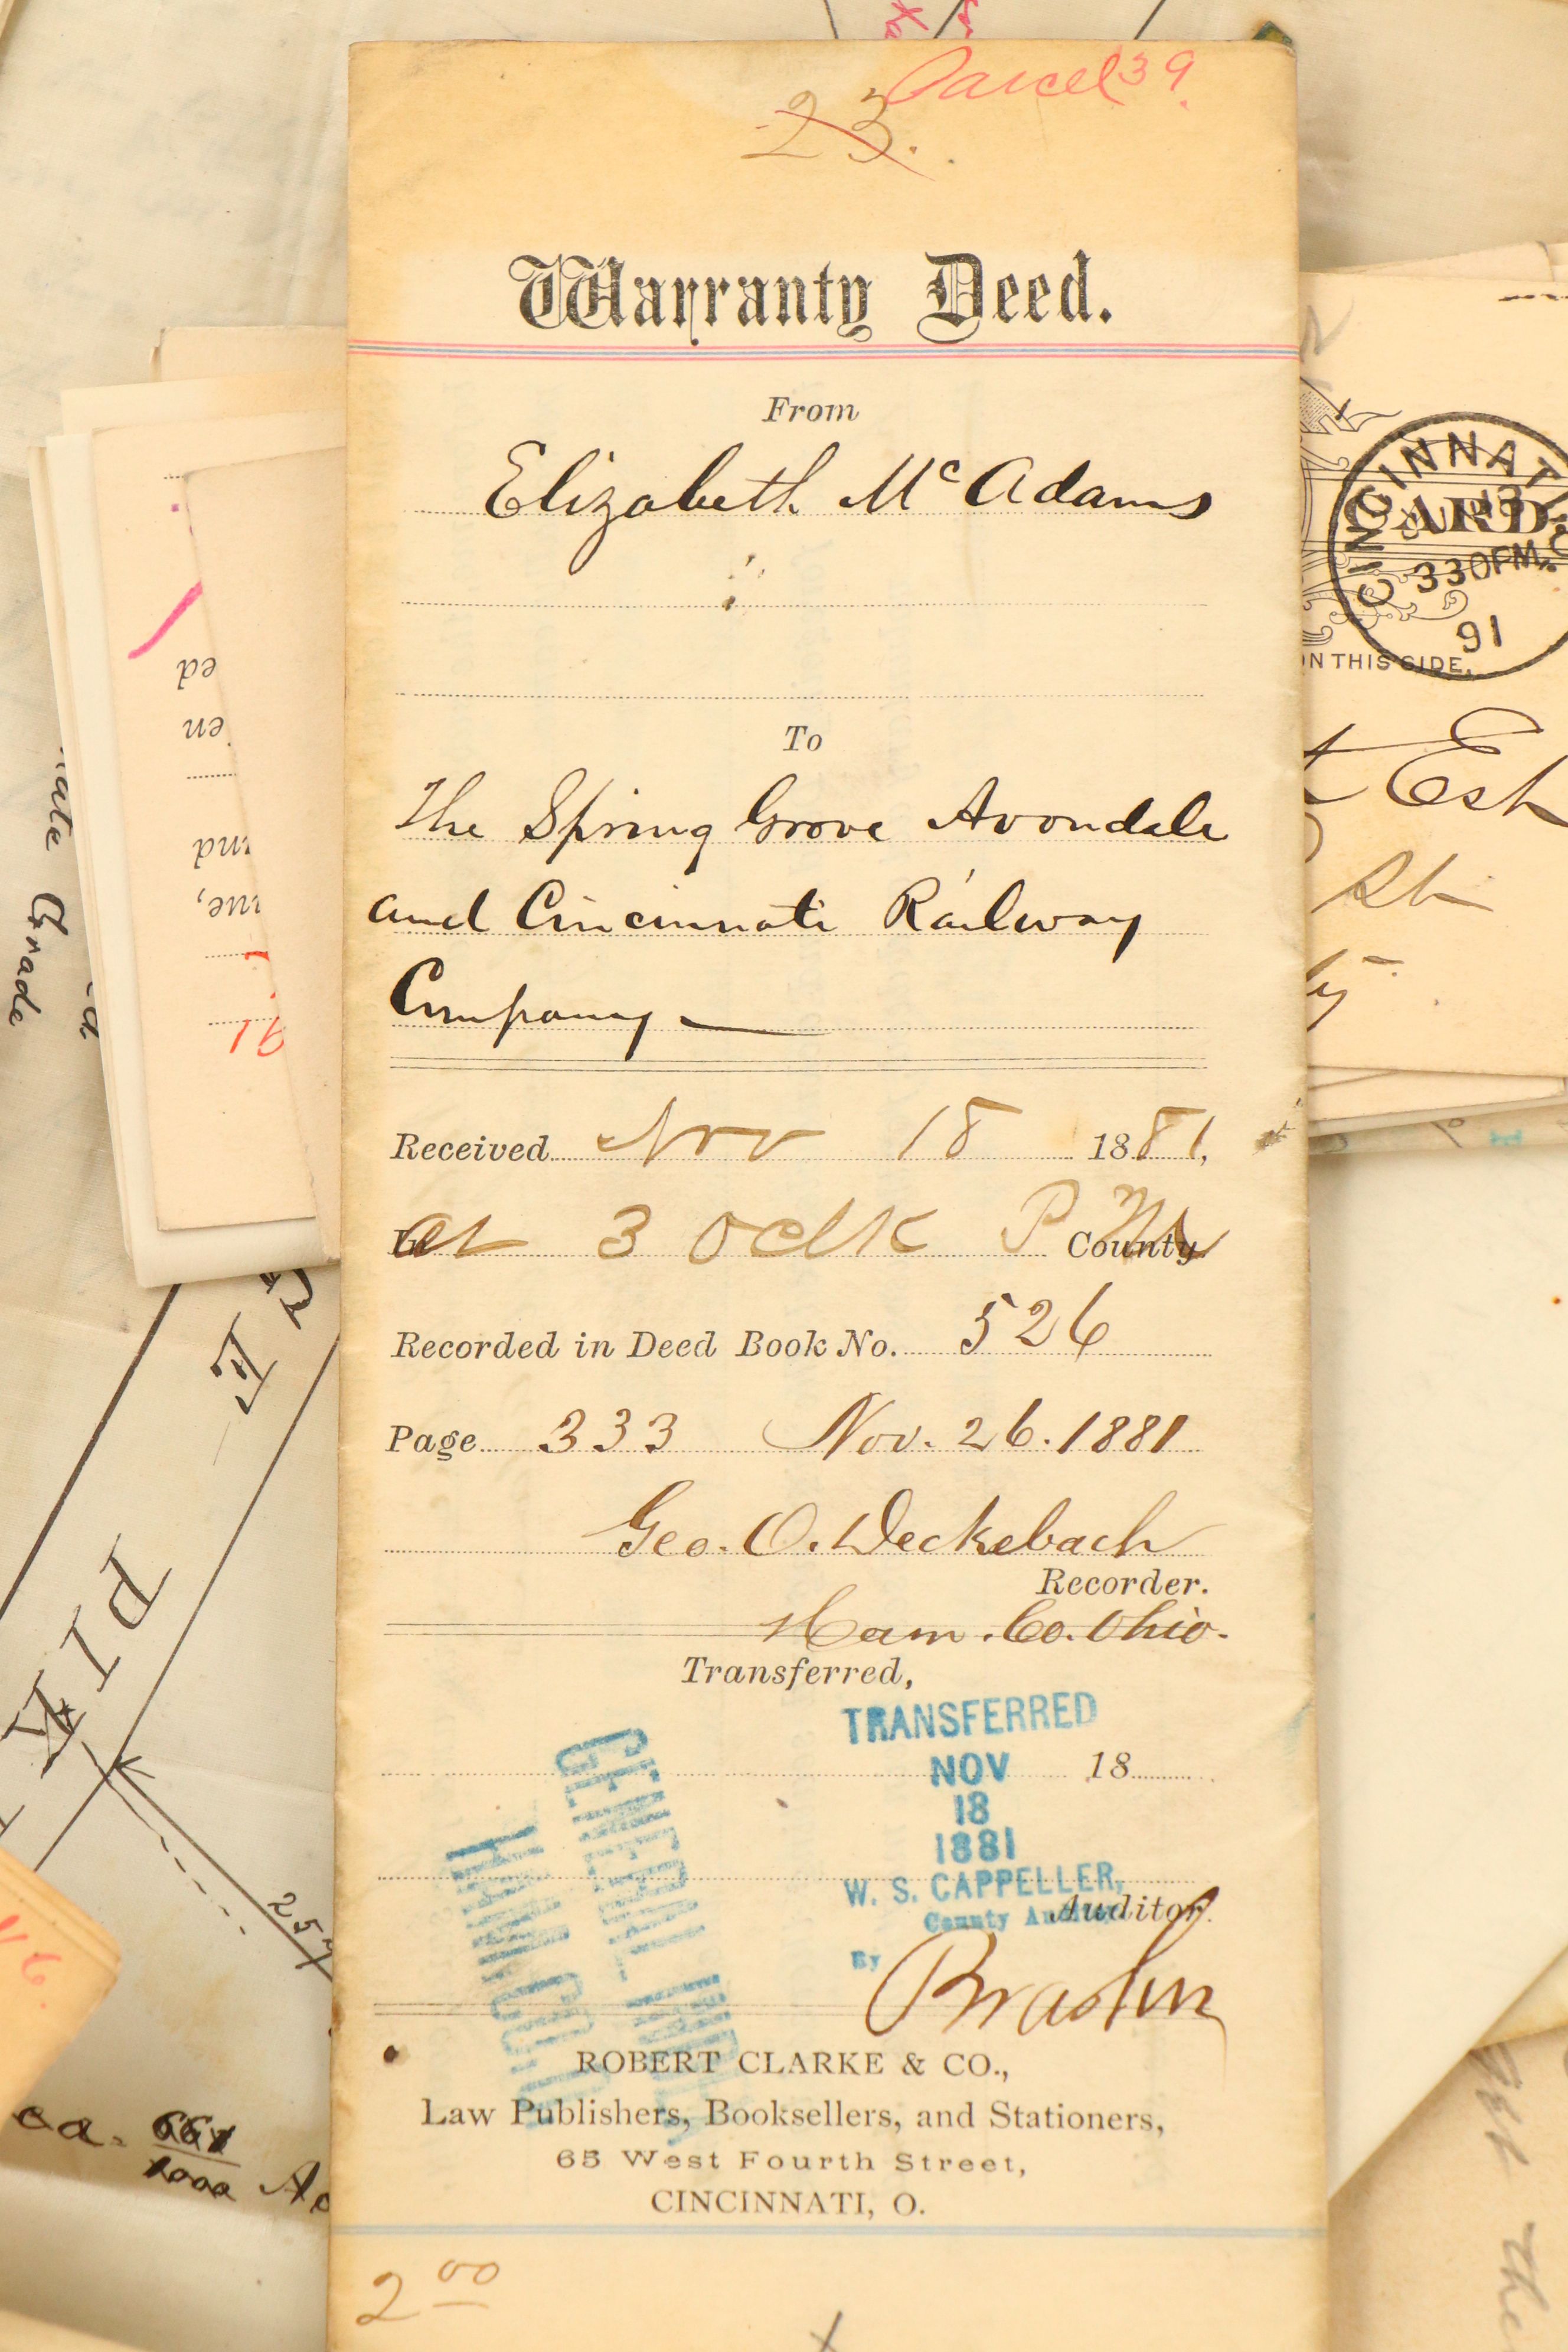 Parcel 39.
23.
Warranty Deed.
From
Elizabeth McAdams
To
The Spring Grove Avondale
and Cincinnati Railway
Company
Received Nov 18 1881,
At 3 Oclk P M County
Recorded in Deed Book No. 526
Page 333 Nov. 26. 1881
Geo. O. Deckebach
Recorder.
Ham. Co. Ohio.
Transferred,
TRANSFERRED
NOV 18
18
1881
W. S. CAPPELLER,
County Auditor.
By
GENERAL
HAM. CO.
ROBERT CLARKE & CO.,
Law Publishers, Booksellers, and Stationers,
65 West Fourth Street,
CINCINNATI, O.
2 00
CINCINNATI, O
CARD
330PM
91
ON THIS SIDE.
t Est
ed
en
nd
ue,
91
Grade
257
661
1000
The